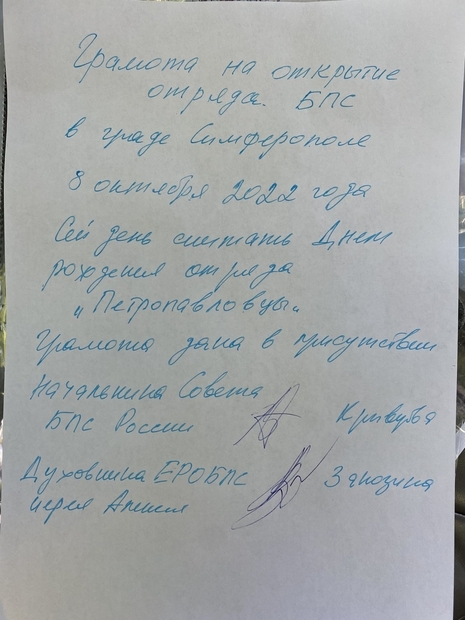 Грамота на открытие
отряда. БПС
в граде Симферополе
8 октября 2022 года
Сей день считать Днем
рождения отряда
„Петропавловцы"
Грамота дана в присутствии
Начальника Совета
БПС России Кривуба
Духовника ЕРОБПС Занозина
иерея